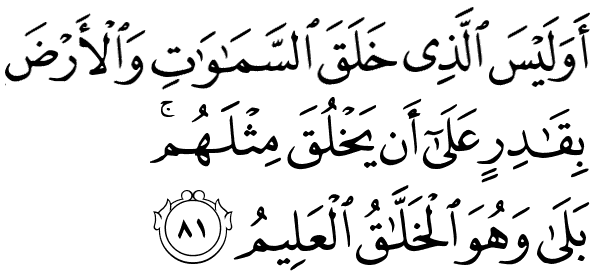 أَوَلَيْسَ ٱلَّذِى خَلَقَ ٱلسَّمَـٰوَٰتِ وَٱلْأَرْضَ
بِقَـٰدِرٍ عَلَىٰٓ أَن يَخْلُقَ مِثْلَهُم ۚ
بَلَىٰ وَهُوَ ٱلْخَلَّـٰقُ ٱلْعَلِيمُ ٨١